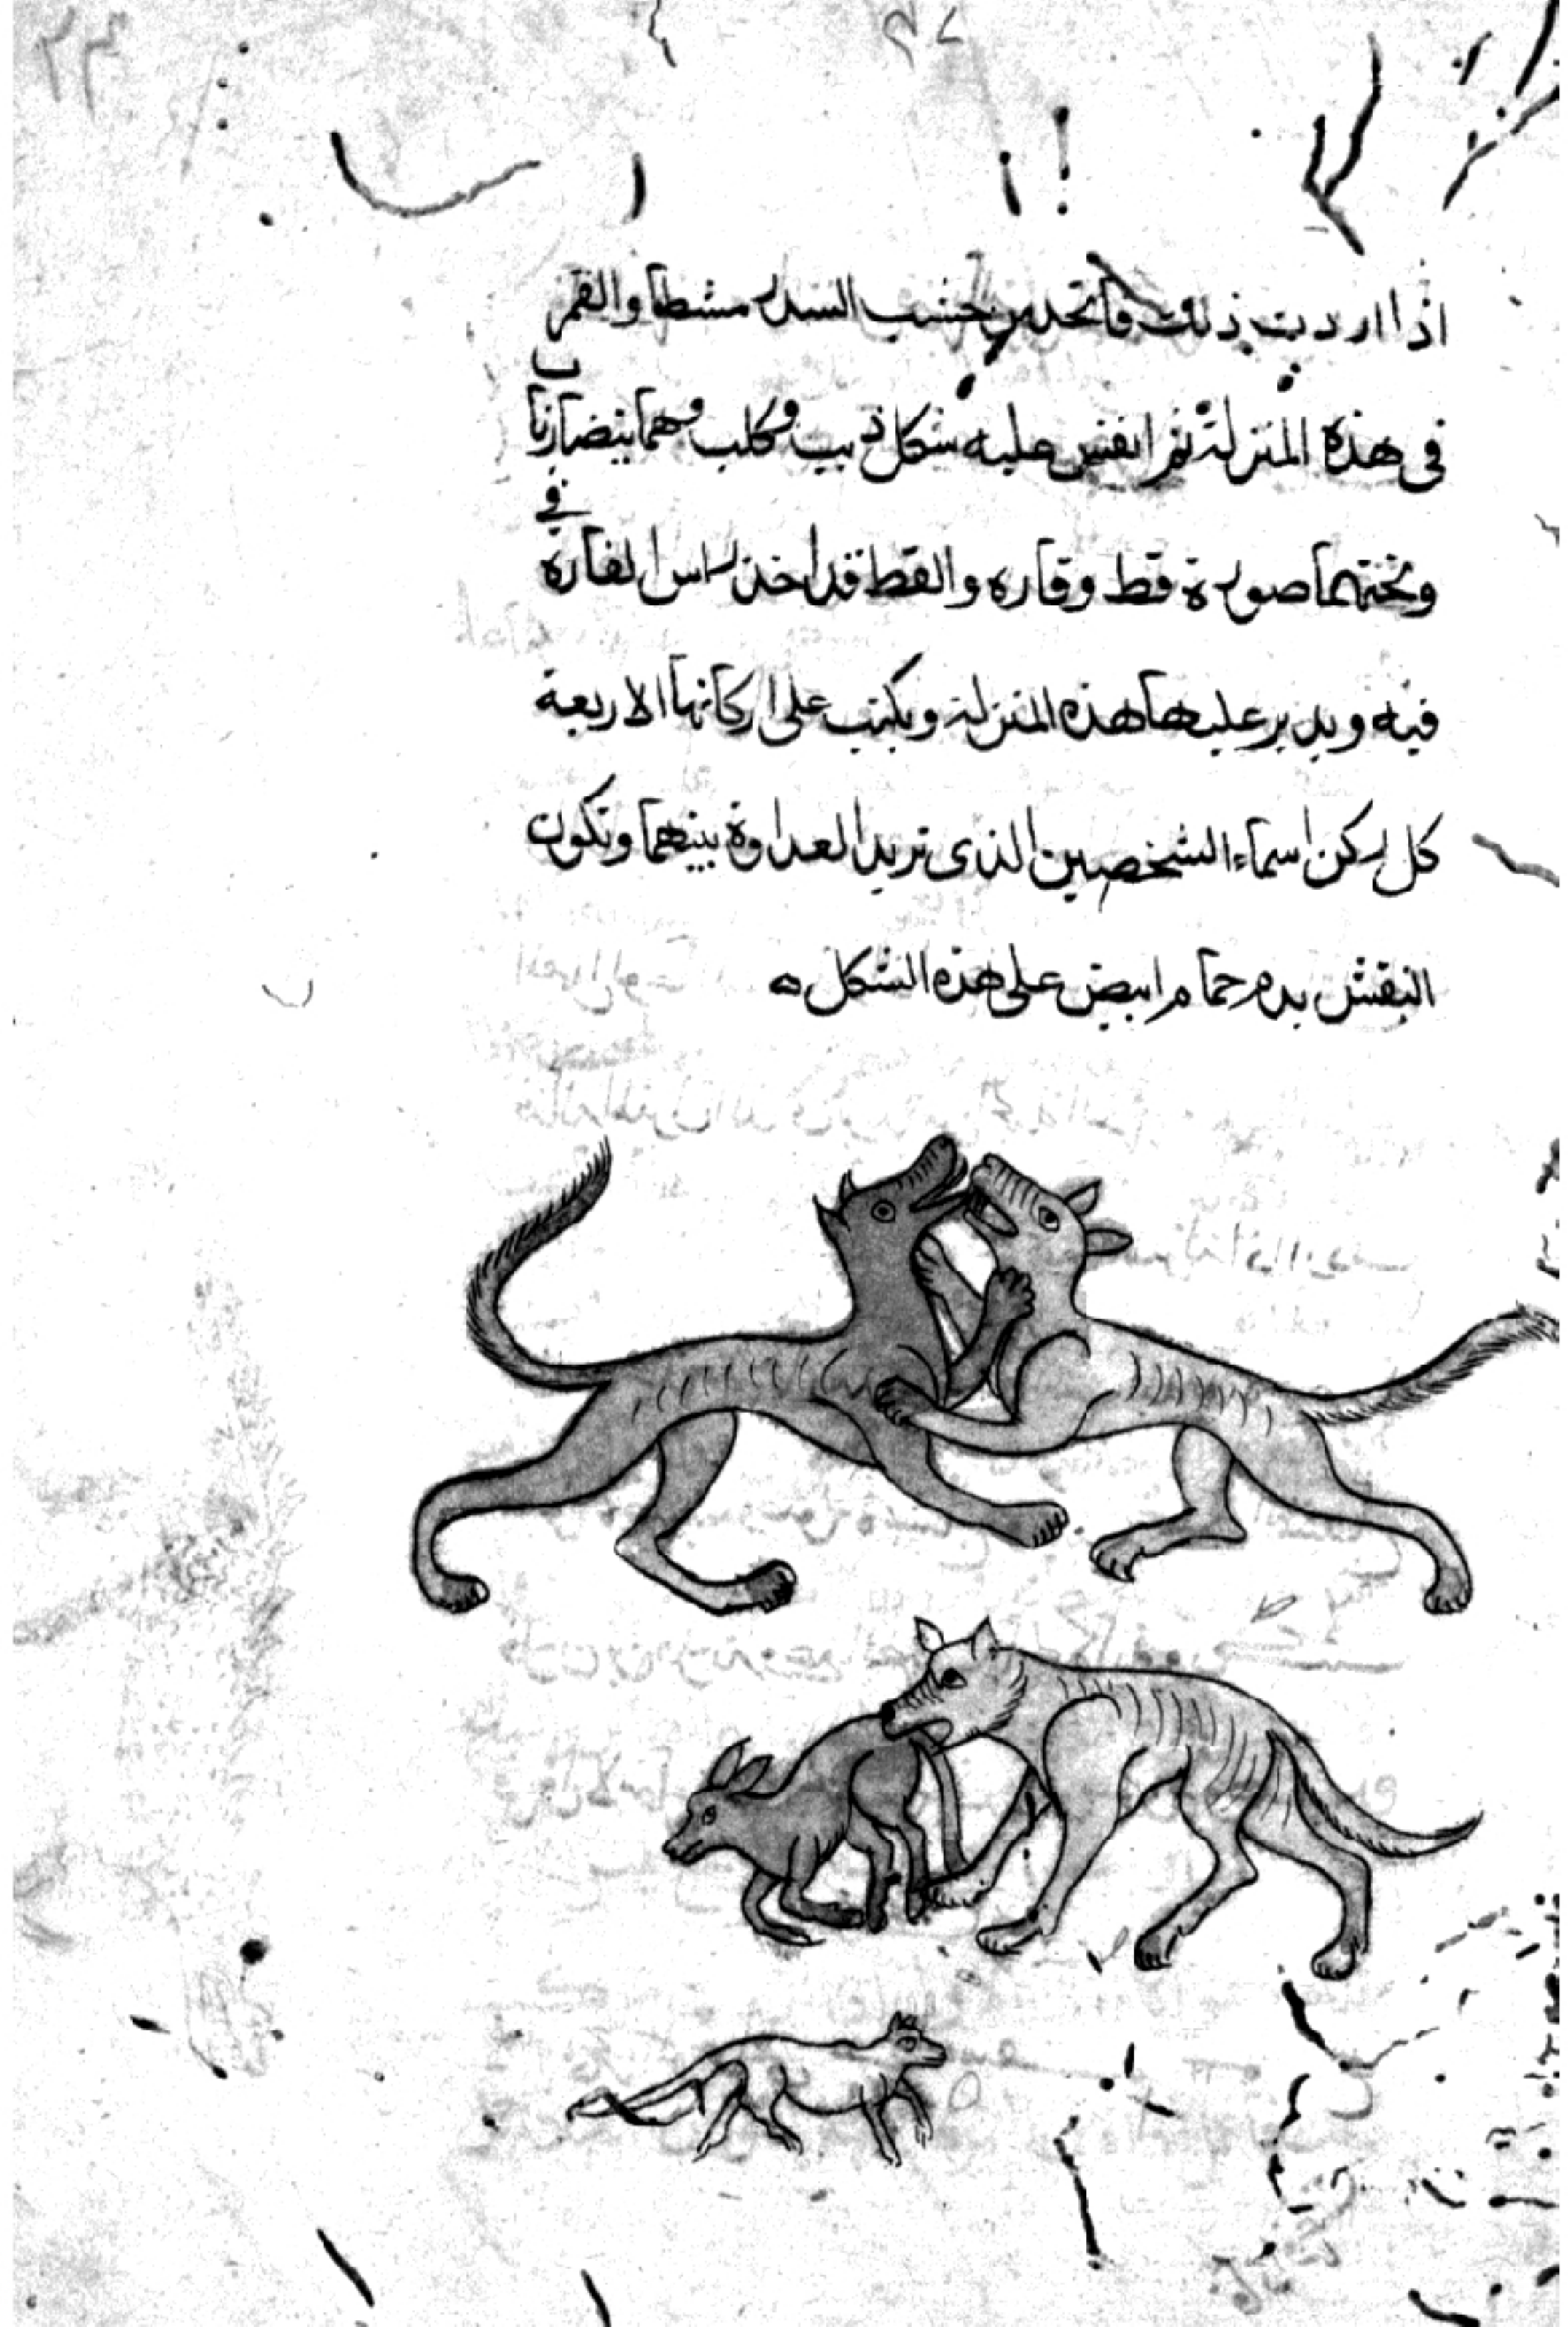 اذا اردت ذلك فاتخد من خشب السدر مشطا والقمر
فى هذه المنزلة ثم انقش عليه شكل ذيب وكلب وهما يتضاربا
وتحتهما صورة قط وفاره والقط قد اخذ راس الفاره في
فيه ويدير عليها هذه المنزلة ويكتب على اركانها الاربعة
كل ركن اسماء الشخصين الذى تريد العداوة بينهما وتكون
النقش بدم حمام ابيض على هذه الشكل ه